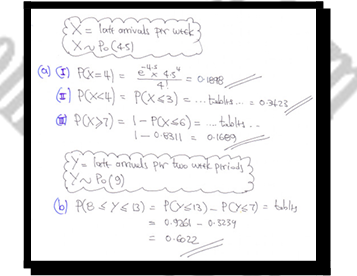 X = late arrivals per week
X ~ Po(4.5)
(a) (I) P(X=4) = e^-4.5 × 4.5^4 / 4! = 0.1898
(II) P(X<4) = P(X≤3) = ... tables ... = 0.3423
(III) P(X≥7) = 1 - P(X≤6) = ... tables ...
1 - 0.8311 = 0.1689
Y = late arrivals per two week periods
Y ~ Po(9)
(b) P(8 ≤ Y ≤ 13) = P(Y≤13) - P(Y≤7) = tables
= 0.9261 - 0.3239
= 0.6022